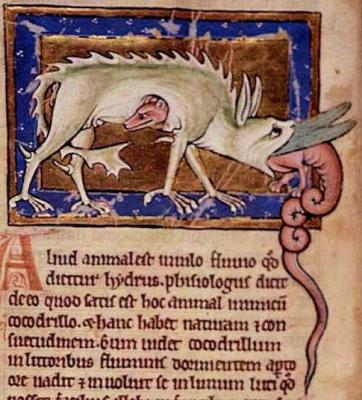 Aliud animal est in nilo fluuio qd
dicitur hydrus. phisiologus dicit
de eo quod satis est hoc animal inimicū
cocodrillo. & hanc habet naturam & con
suetudinem. Cum uidet cocodrillum
in littoribus fluminis dormientem apto
ore uadit & inuoluit se in limum luti qo